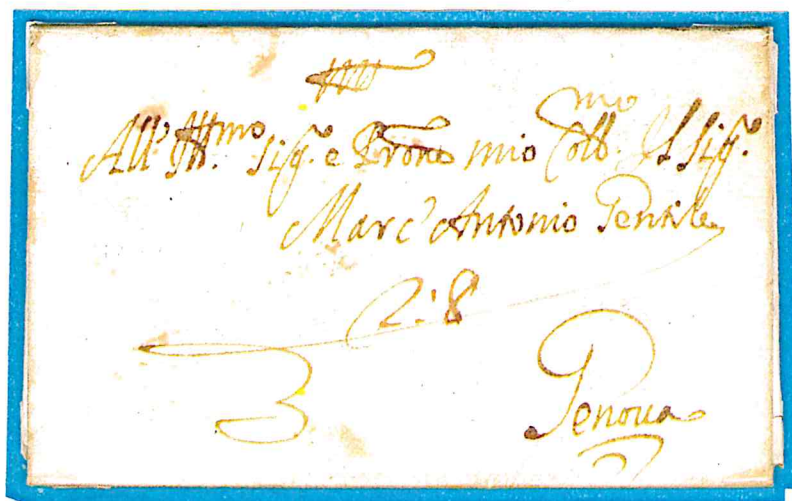 All' Ill.mo Sig.r e Prone mio Coll.mo Il Sig.r
Marc' Antonio Gentile
2:8
Genova